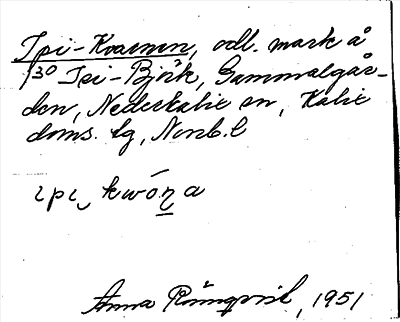 Ipi-Kvarnen, odl. mark å
1³⁰ Ipi-Björk, Gammalgår-
den, Nederkalix sn, Kalix
doms. tg, Nmb. l
ɩpɩ, kwóṉa
Anna Rönnqvist, 1951